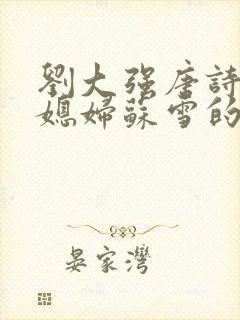 劉大强唐詩
媳婦蘇雪的
晏家灣